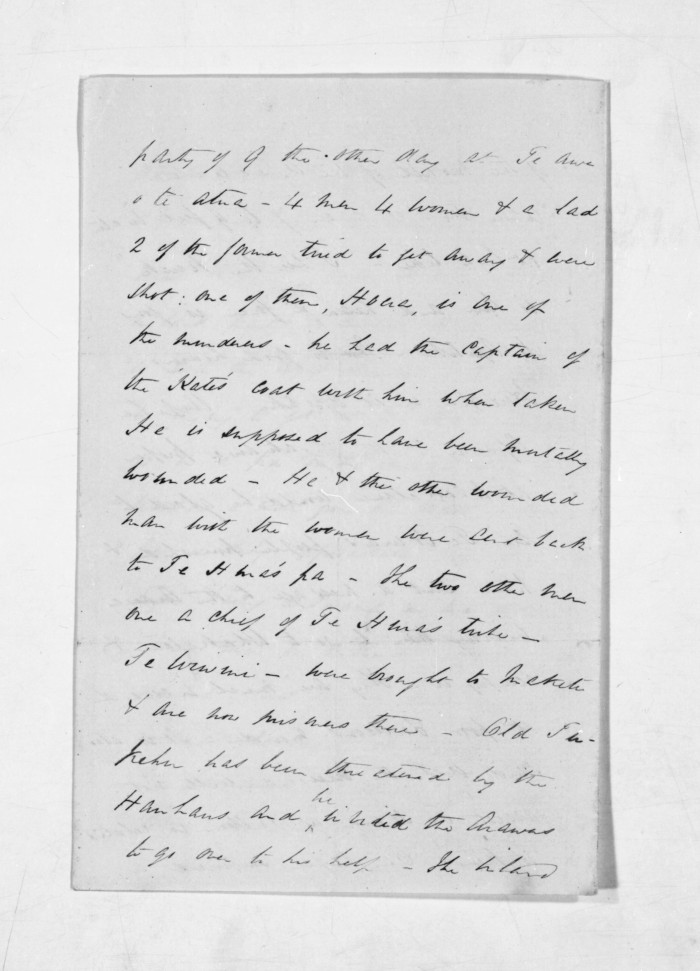 party of 9 the other day at Te awa
o te atua - 4 men 4 women & a lad
2 of the former tried to get away & were
shot: one of them, Hoera, is one of
the murderers - he had the Captain of
the Kate's coat with him when taken
He is supposed to have been mortally
wounded - He & the other wounded
man with the women were sent back
to Te Hura's pa - The two other men
one a chief of Te Hura's tribe -
Te Wiwini - were brought to Maketu
& are now prisoners there - Old
has been threatened by the
Hauhaus and he invited the Arawas
to go over to his help - The inland